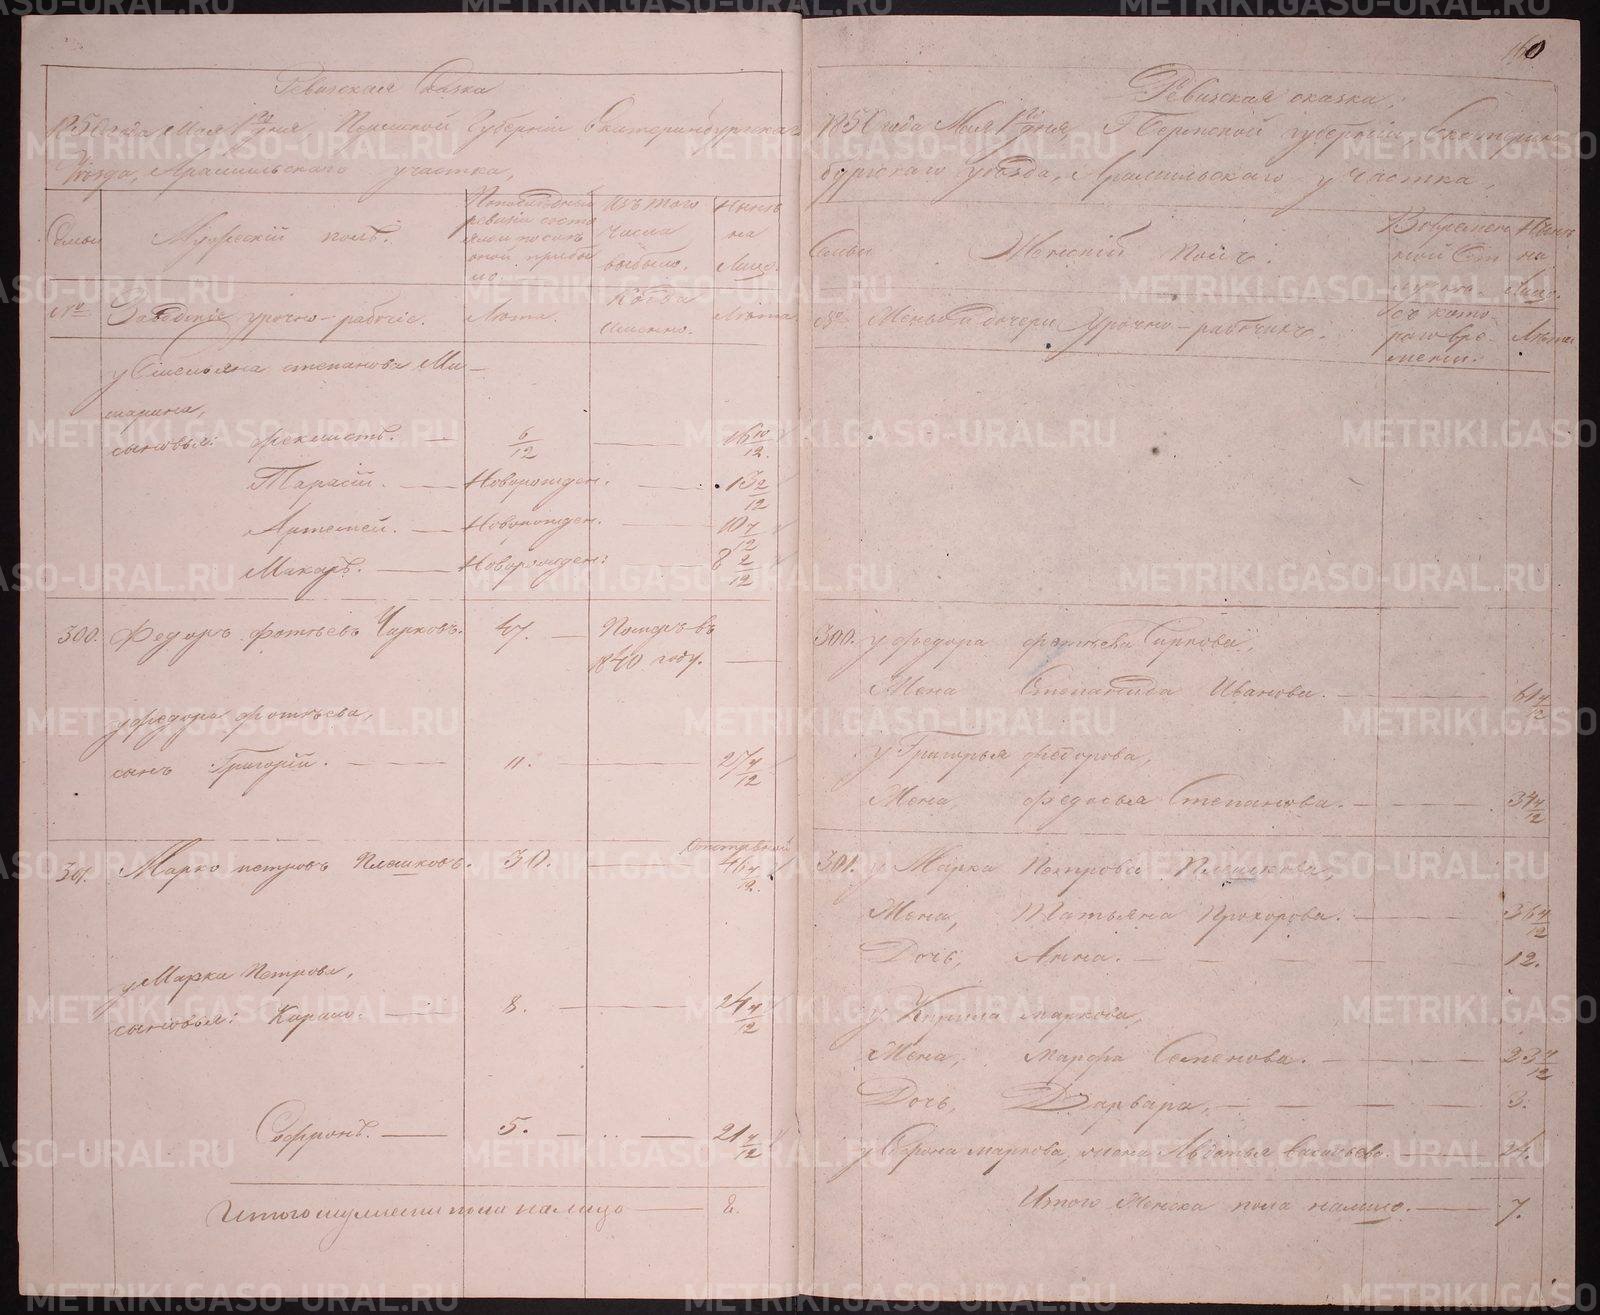 160
Ревизская Сказка
1850 года Мая 1го дня Пермской Губернии Екатеринбургскаго
Уезда, Арамильского участка,
Семьи
Мужеский полъ.
По последней ревизии состояло и после оной прибыло.
Изъ того числа выбыло.
Ныне на Лицо.
№
Заводские урочно-рабочие.
Лета.
Когда Именно.
Лета
у Емельяна степанова
сыновья: Феклистъ. — 6/12 — 16 10/12.
Тарасий. — Новорожден. — 13 2/12
Артемей. — Новорожден. — 10 7/12
Макаръ. — Новорожден: — 8 2/12
300. Федоръ фотеевъ Чирковъ. 47. — Померъ въ
1840 году. —
у Федора фотеева,
сынъ Григорий. — 11. — 27 4/12
301. Марко петровъ Плешковъ. 30. — 46 4/12.
у Марка Петрова,
сыновья: Кирило. — 8. — 24 4/12
Софронъ. — 5. — 21 4/12
Итого мужеска пола налицо — 8.
Ревизская сказка,
1850 года Мая 1го дня, Пермской губернии, Екатеринбургскаго уезда, Арамильскаго участка,
Семьи
Женский Полъ.
Во временной Отлучке.
Ныне на Лицо.
№
Жены и дочери Урочно-рабочихъ.
съ которого времени.
Лета
300. у Федора фотеева Чиркова,
Жена Степанида Иванова. — 61 4/12
у Григорья федорова,
Жена, Федосья Степанова. — 34 4/12
301. у Марка Петрова Плешкова,
Жена, Татьяна Прохорова. — 36 4/12
Дочь, Анна. — 12.
у Кирила маркова,
Жена, марфа Семенова. — 23 4/12
Дочь, Варвара, — 3.
у Софрона маркова, жена Авдотья Васильева. — 24.
Итого Женска пола налицо. — 7.
METRIKI.GASO-URAL.RU